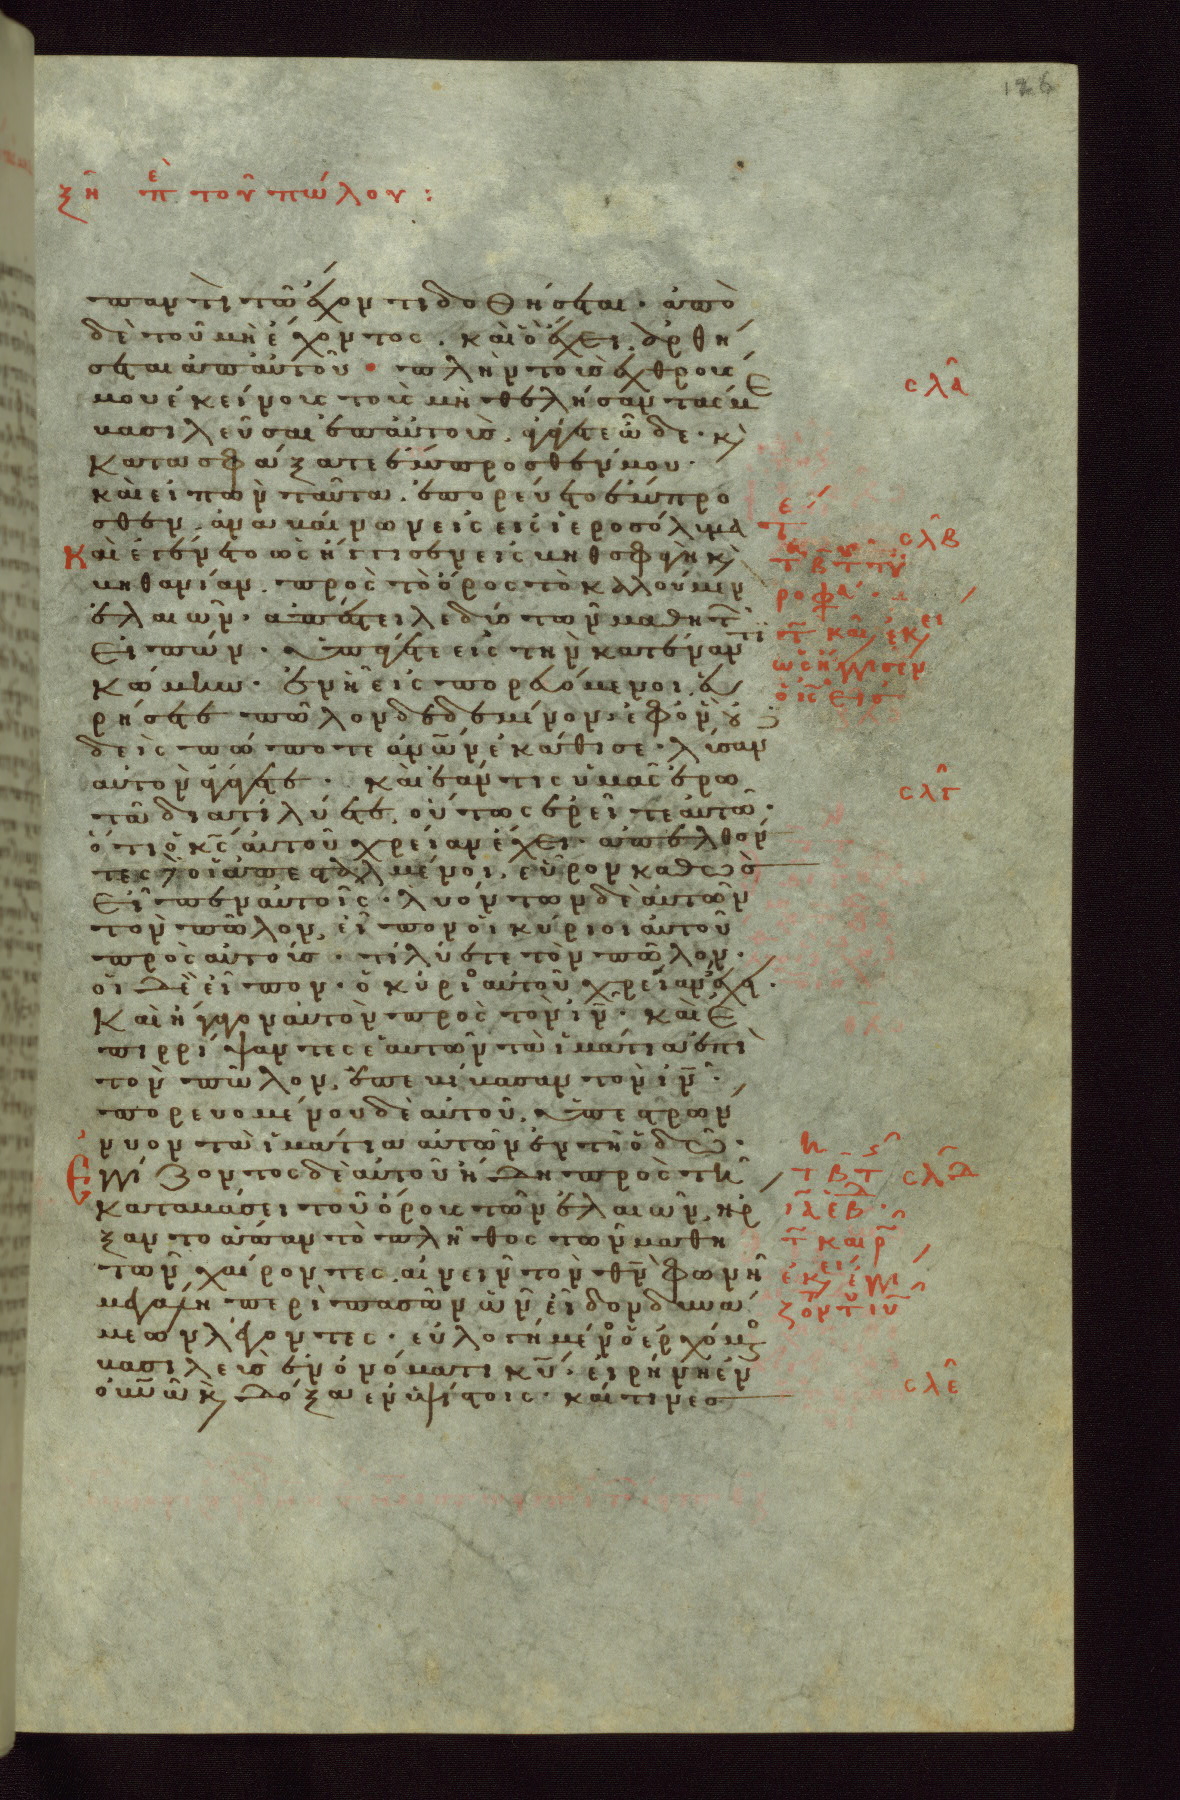 126
ξη περι του πώλου :
παντὶ τῶ ἔχοντι δοθήσεται · ἀπὸ
δὲ τοῦ μὴ ἔχοντος · καὶ ὃ ἔχει, ἀρθή
σεται ἀπ' αὐτοῦ · πλὴν τοὺς ἐχθρούς
μου ἐκείνους τοὺς μὴ θελήσαντάς με
βασιλεῦσαι ἐπ' αὐτοὺς, ἀγάγετε ὧδε · κ(αὶ)
κατασφάξατε ἔμπροσθέν μου ·
καὶ εἰπὼν ταῦτα, ἐπορεύετο ἔμπρο
σθεν, ἀναβαίνων εἰς ἱεροσόλυμα
καὶ ἐγένετο ὡς ἤγγισεν εἰς βηθσφαγὴ κ(αὶ)
βηθανίαν, πρὸς τὸ ὄρος τὸ καλούμεν
ἐλαιῶν · ἀπέστειλε δύο τῶν μαθητ
εἰπών · ὑπάγετε εἰς τὴν κατέναντι
κώμην · ἐν ᾗ εἰσπορευόμενοι, εὑ
ρήσετε πῶλον δεδεμένον ἐφ' ὃν οὐ
δεὶς πώποτε ἀνων ἐκάθισε · λύσαν
αὐτὸν ἀγάγετε · καὶ ἐάν τις ὑμᾶς ἐρω
τᾶ διατί λύετε, οὕτως ἐρεῖτε αὐτῶ ·
ὅτι ὁ κς αὐτοῦ χρείαν ἔχει · ἀπελθόν
τες δὲ οἱ ἀπεσταλμένοι, εὗρον καθὼς
εἶπεν αὐτοῖς · λυόντων δὲ αὐτῶν
τὸν πῶλον, εἶπον οἱ κύριοι αὐτοῦ
πρὸς αὐτούς · τί λύετε τὸν πῶλον ·
οἱ δὲ εἶπον · ὁ κύριος αὐτοῦ χρείαν ἔχει ·
Καὶ ἤγαγον αὐτὸν πρὸς τὸν ιν · καὶ ἐ
πιρρίψαντες ἑαυτῶν τὰ ἱμάτια ἐπὶ
τὸν πῶλον, ἐπεβίβασαν τὸν ιν ·
πορευομένου δὲ αὐτοῦ, ὑπεστρών
νυον τὰ ἱμάτια αὐτῶν ἐν τῇ ὁδῶ ·
Ἐγγίζοντος δὲ αὐτοῦ ἤδη πρὸς τῇ
καταβάσει τοῦ ὄρους τῶν ἐλαιῶν, ἤρ
ξαντο ἅπαν τὸ πλῆθος τῶν μαθη
τῶν χαίροντες, αἰνεῖν τὸν θν φωνῇ
μεγάλη περὶ πασῶν ὧν εἶδον δυνά
μεων λέγοντες · εὐλογημένος ὁ ἐρχόμενος
βασιλεὺς ἐν ὀνόματι κυ · εἰρήνη ἐν
οὐνῶ κ(αὶ) δόξα ἐν ὑψίστοις · καί τινες
σλα
σλβ
σλγ
σλδ
σλε